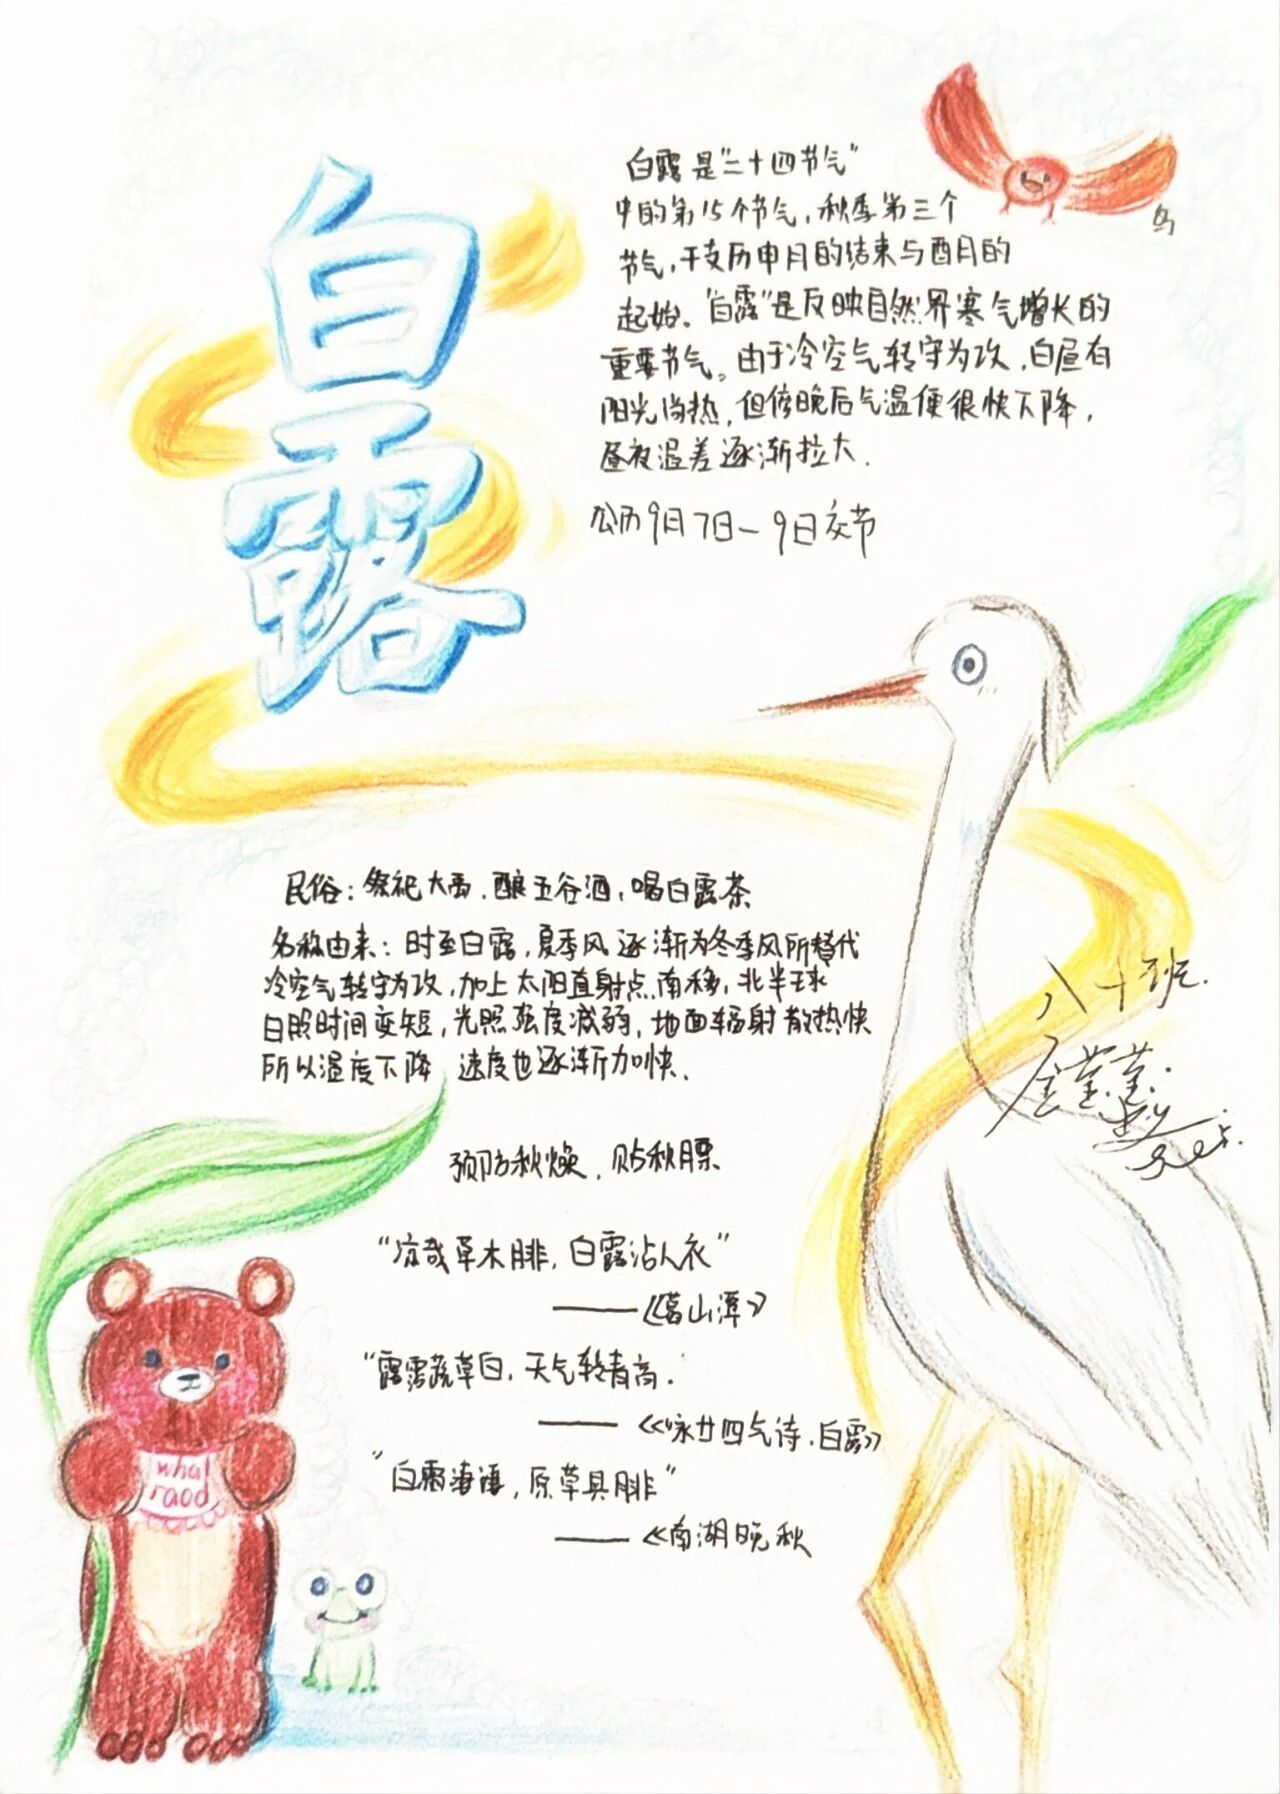 白露
白露是"二十四节气"
中的第15个节气，秋季第三个
节气，干支历申月的结束与酉月的
起始。"白露"是反映自然界寒气增长的
重要节气。由于冷空气转守为攻，白昼有
阳光尚热，但傍晚后气温便很快下降，
昼夜温差逐渐拉大.
公历9月7日—9日交节
鸟
民俗：祭祀大禹、酿五谷酒，喝白露茶
名称由来：时至白露，夏季风逐渐为冬季风所替代
冷空气转守为攻，加上太阳直射点南移，北半球
日照时间变短，光照强度减弱，地面辐射散热快
所以温度下降 速度也逐渐加快.
八十班.
预防秋燥，贴秋膘
"凉哉草木腓，白露沾人衣"
——《葛山潭》
"露沾蔬草白，天气转青高.
——《咏廿四气诗.白露》
"白露凄，原草具腓"
——《南湖晚秋
what
raod